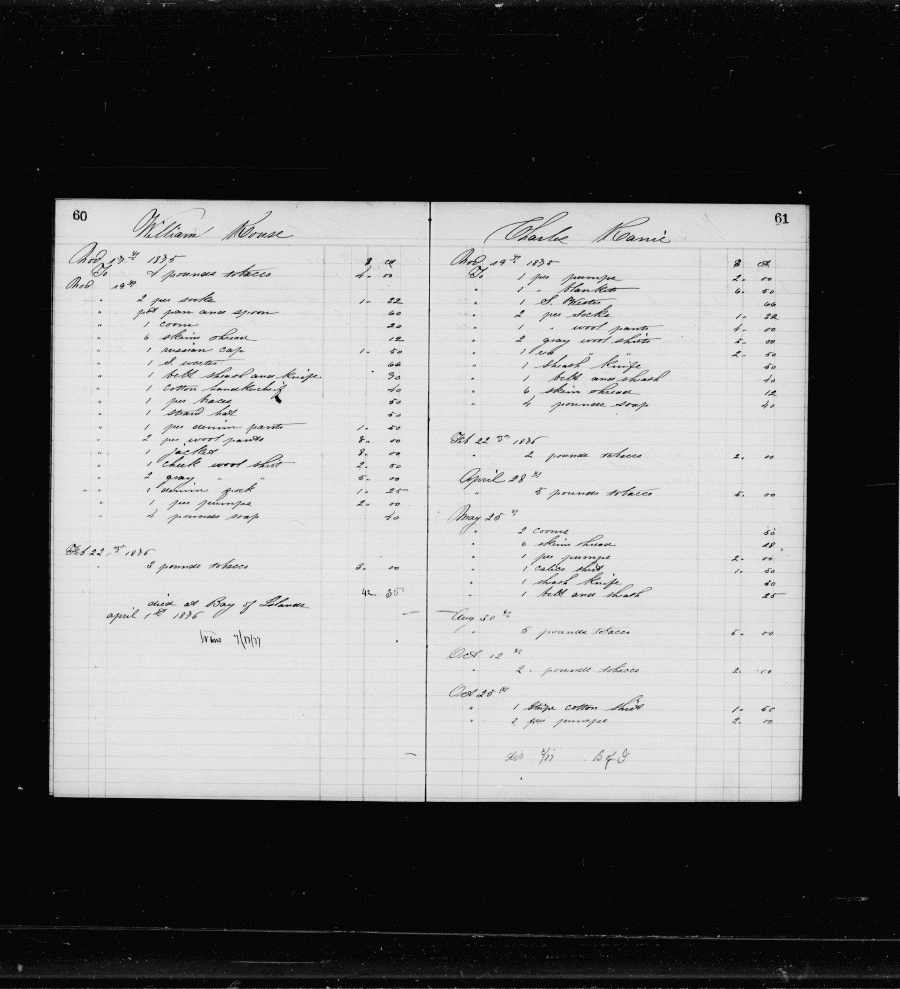 60
William Rouse
Nov 17th 1875 $ ct
To 4 pounds tobacco 4. 00
Nov 19th
" 2 prs socks 1. 22
" pot pan and spoon 60
" 1 coom 20
" 6 skeins thread 12
" 1 russian cap 1. 50
" 1 S wester 66
" 1 belt sheath and knife 90
" 1 cotton handkerchief 40
" 1 per braces 50
" 1 straw hat 50
" 1 per denim pants 1. 50
" 2 per wool pants 8. 00
" 1 jacket 8. 00
" 1 check wool shirt 2. 50
" 2 gray " " 5. 00
" 1 denim frock 1. 25
" 1 per pumps 2. 00
" 4 pounds soap 40
Feb 22nd 1876
" 3 pounds tobacco 3. 00
42. 35
died at Bay of Islands
april 1st 1876
7/17/77
61
Charles Kanie
Nov 19th 1875 $ ct
To 1 per pumps 2. 00
" 1 " blankets 6. 50
" 1 S. Wester 66
" 2 per socks 1. 22
" 1 " wool pants 4. 00
" 2 gray wool shirts 5. 00
" 1 red " " 2. 50
" 1 sheath knife 50
" 1 belt and sheath 40
" 6 skein thread 12
" 4 pounds soap 40
Feb 22nd 1876
" 2 pounds tobacco 2. 00
April 28th
" 5 pounds tobacco 5. 00
May 25th
" 2 cooms 50
" 6 skeins thread 28
" 1 per pumps 2. 00
" 1 calico shirt 1. 50
" 1 sheath knife 50
" 1 belt and sheath 25
Aug 30th
" 5 pounds tobacco 5. 00
Oct 12th
" 2 pounds tobacco 2. 00
Oct 25th
" 1 stripe cotton shirt 1. 50
" 2 per pumps 2. 00
dis /77 B of I